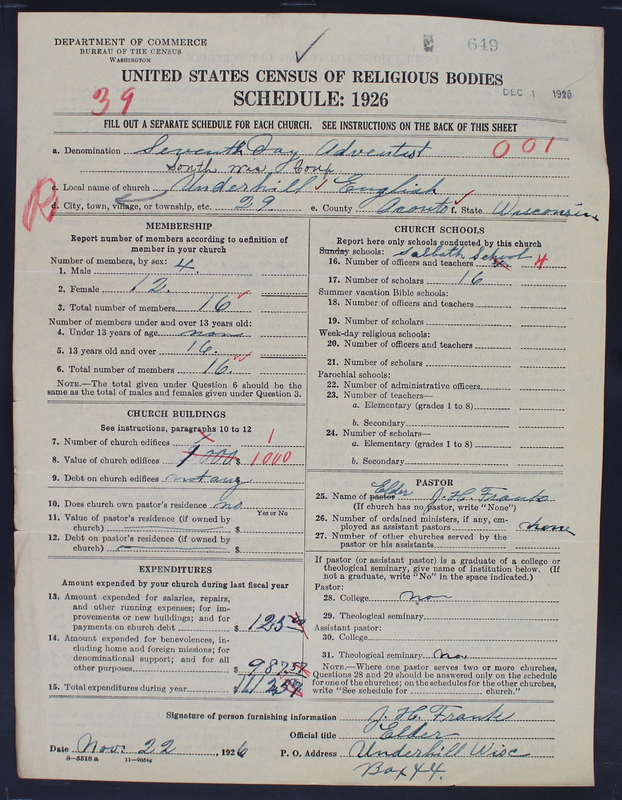 DEPARTMENT OF COMMERCE
BUREAU OF THE CENSUS
WASHINGTON
649
UNITED STATES CENSUS OF RELIGIOUS BODIES
SCHEDULE: 1926
DEC 1 1926
39
FILL OUT A SEPARATE SCHEDULE FOR EACH CHURCH. SEE INSTRUCTIONS ON THE BACK OF THIS SHEET
a. Denomination Seventh Day Adventist 001
South Wis, Conf
c. Local name of church Underhill English
R
d. City, town, village, or township, etc. 29 e. County Oconto f. State Wisconsin
MEMBERSHIP
Report number of members according to definition of
member in your church
Number of members, by sex:
1. Male 4.
2. Female 12.
3. Total number of members 16
Number of members under and over 13 years old:
4. Under 13 years of age none
5. 13 years old and over 16.
6. Total number of members 16.
NOTE.—The total given under Question 6 should be the
same as the total of males and females given under Question 3.
CHURCH BUILDINGS
See instructions, paragraphs 10 to 12
7. Number of church edifices 1 1
8. Value of church edifices 1000. 1000
9. Debt on church edifices not any
10. Does church own pastor's residence? no
Yes or No
11. Value of pastor's residence (if owned by
church) $
12. Debt on pastor's residence (if owned by
church) $
EXPENDITURES
Amount expended by your church during last fiscal year
13. Amount expended for salaries, repairs,
and other running expenses; for im-
provements or new buildings; and for
payments on church debt $ 125.00
14. Amount expended for benevolences, in-
cluding home and foreign missions; for
denominational support; and for all
other purposes $ 987.57
15. Total expenditures during year $
CHURCH SCHOOLS
Report here only schools conducted by this church
Sunday schools: Sabbath School
16. Number of officers and teachers 4. 4
17. Number of scholars 16
Summer vacation Bible schools:
18. Number of officers and teachers
19. Number of scholars
Week-day religious schools:
20. Number of officers and teachers
21. Number of scholars
Parochial schools:
22. Number of administrative officers
23. Number of teachers—
a. Elementary (grades 1 to 8)
b. Secondary
24. Number of scholars—
a. Elementary (grades 1 to 8)
b. Secondary
PASTOR
Elder
25. Name of pastor J. H. Frank
(If church has no pastor, write "None")
26. Number of ordained ministers, if any, em-
ployed as assistant pastors none
27. Number of other churches served by the
pastor or his assistants
If pastor (or assistant pastor) is a graduate of a college or
theological seminary, give name of institution below. (If
not a graduate, write "No" in the space indicated.)
Pastor:
28. College no
29. Theological seminary
Assistant pastor:
30. College
31. Theological seminary no
NOTE.—Where one pastor serves two or more churches,
Questions 28 and 29 should be answered only on the schedule
for one of the churches; on the schedules for the other churches,
write "See schedule for church."
Signature of person furnishing information J. H. Frank
Official title Elder
Date Nov. 22, 1926 P. O. Address Underhill Wisc
8—5518 a 11—9054a
Box 44.